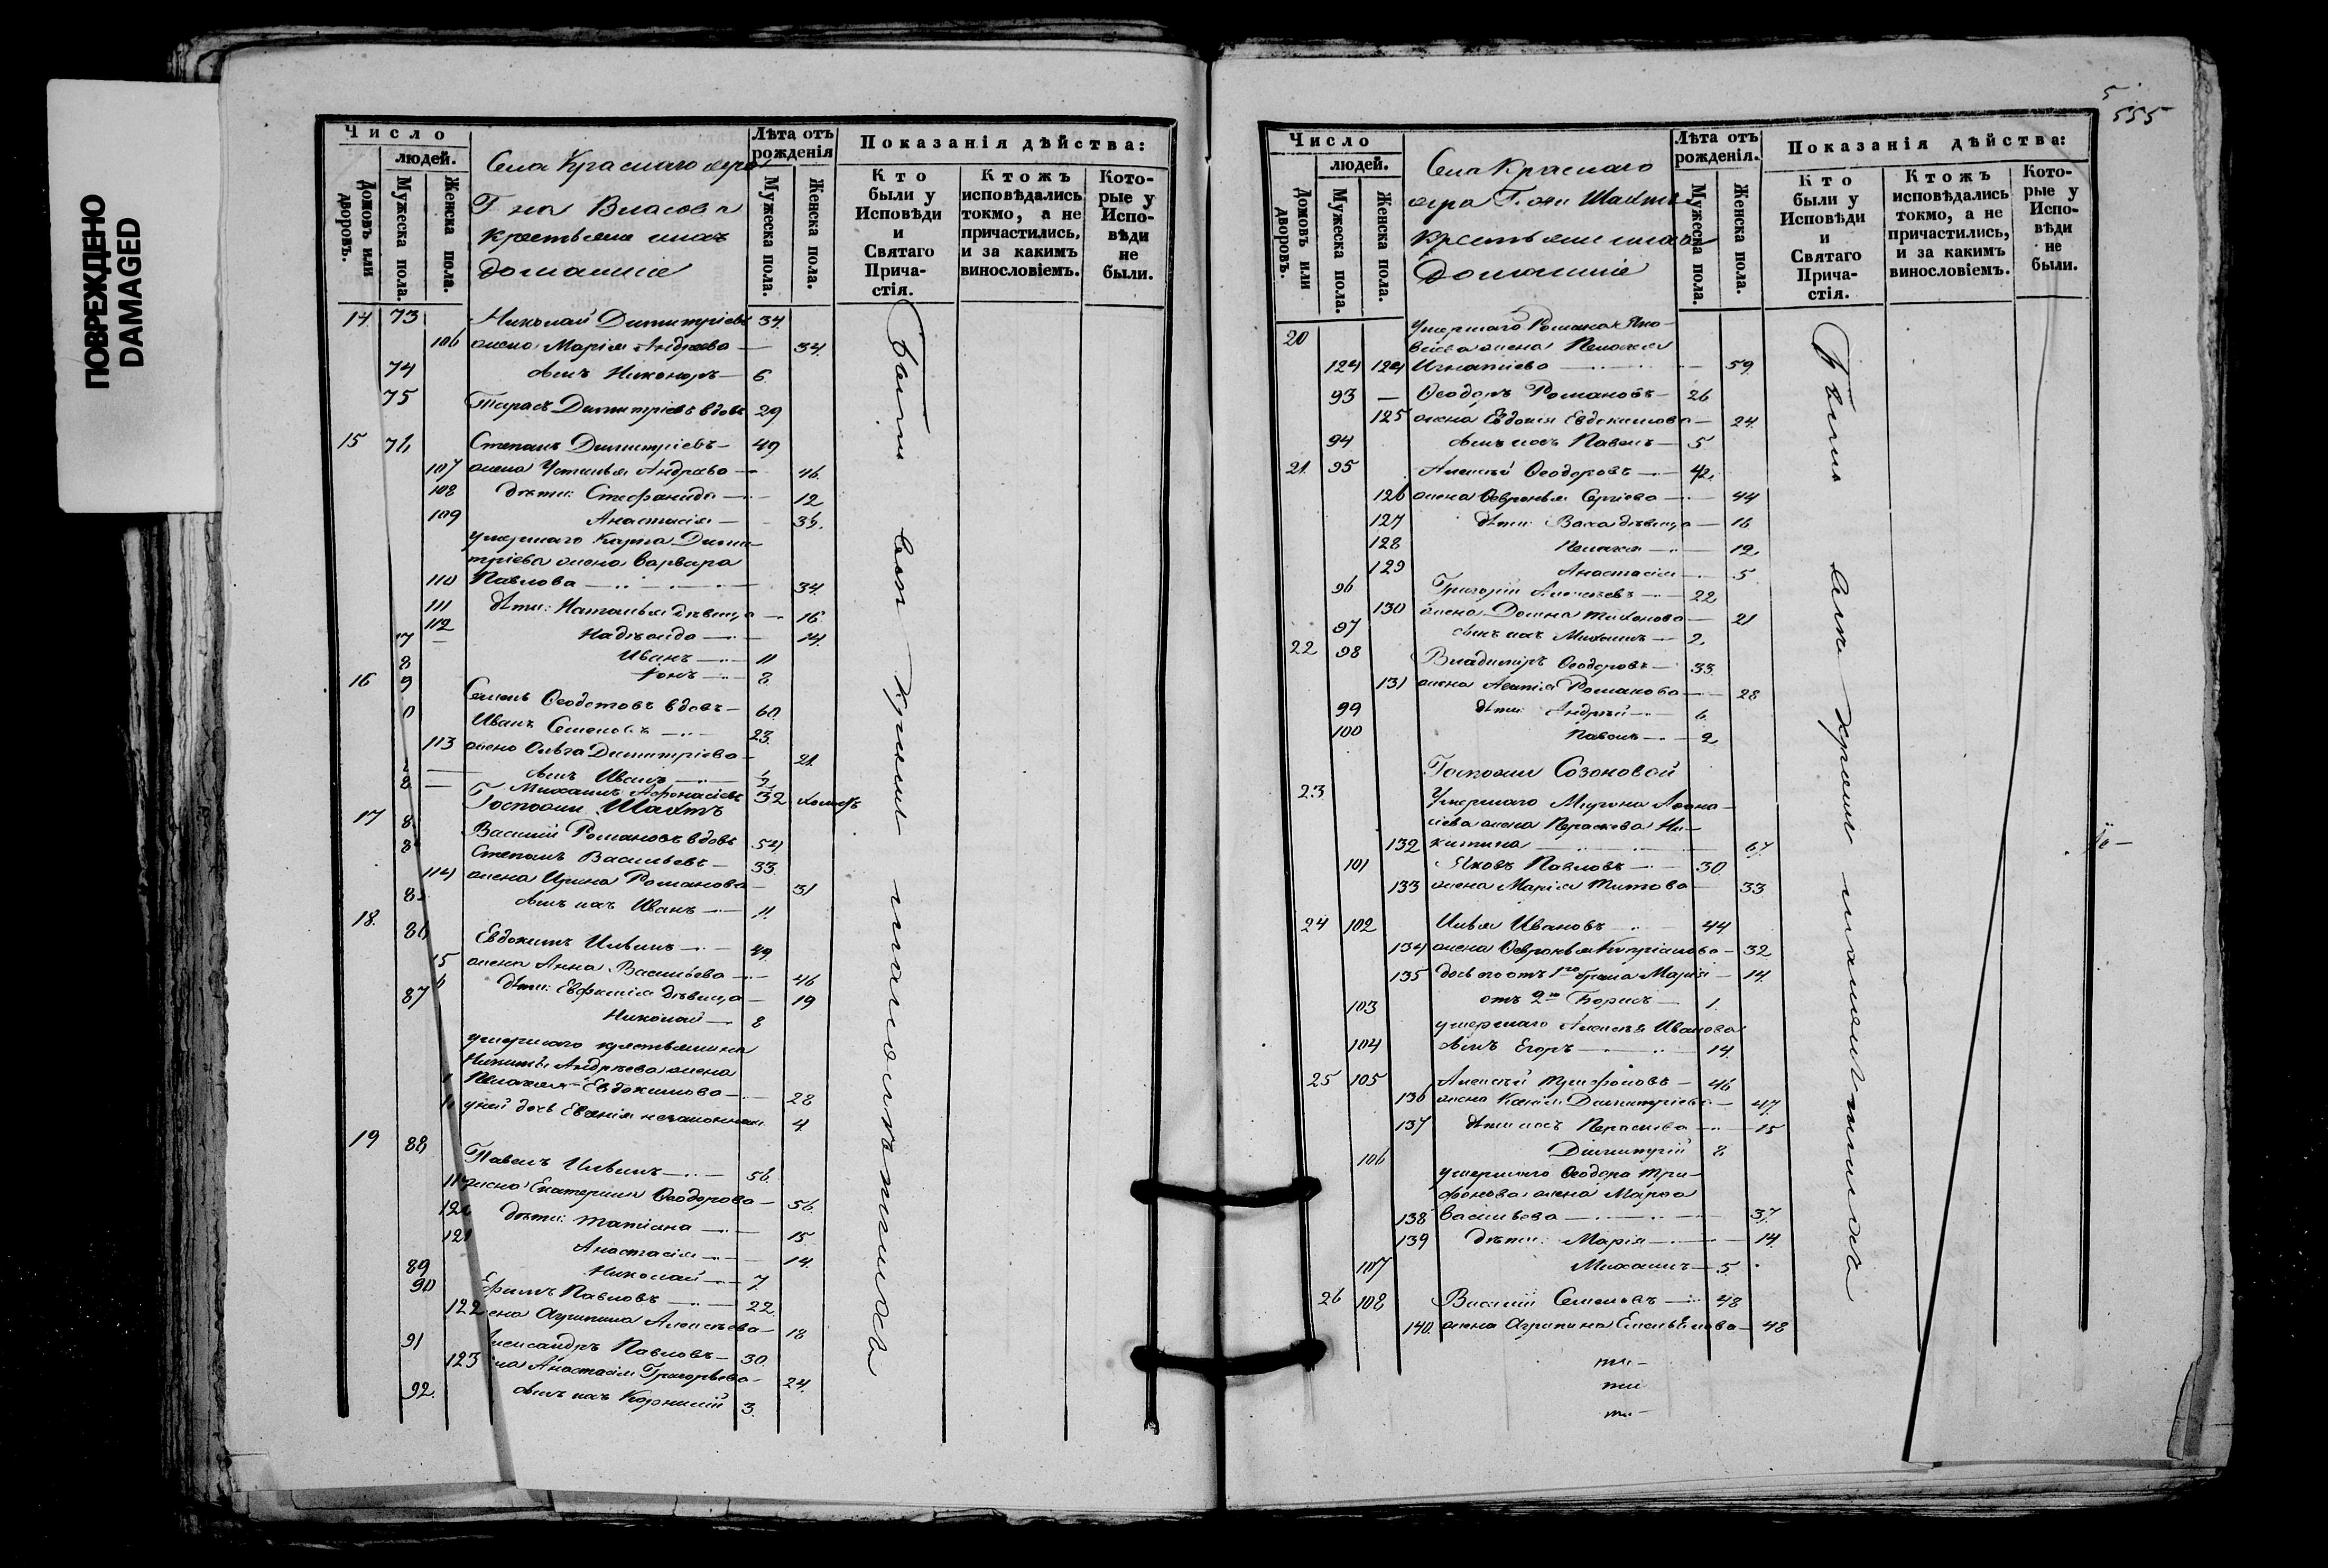 ПОВРЕЖДЕНО
DAMAGED
Число
людей.
Домовъ или дворовъ.
Мужеска пола.
Женска пола.
Села Краснаго яра
Г на Власова
крестьяне ихъ
домашніе
Лѣта отъ рожденія
Мужеска пола.
Женска пола.
Показанія дѣйства:
Кто были у Исповѣди и Святаго Причастія.
Ктожъ исповѣдались токмо, а не причастились, и за какимъ винословіемъ.
Которые у Исповѣди не были.
14 73 Николай Димитріевъ 34.
106 жена Марія Андреева — 34.
74 сынъ Никаноръ — 6.
75 Тарасъ Димитріевъ вдовъ 29
15 76 Степанъ Димитріевъ — 49
107 жена Устинья Андрева — 46.
108 дѣти: Стефанида — 12
109 Анастасія —
умершаго Карпа Дими-
тріева жена Варвара
110 Павлова — 34.
111 дѣти: Наталья дѣвица — 16.
112 Надѣжда — 14.
7 Иванъ — 11
8 — 8
16 9 Семенъ Ѳеодотовъ вдовъ — 60.
0 Иванъ Семеновъ — 23.
113 жена Ольга Димитріева — 21.
сынъ Иванъ —
8 — Михаилъ Афонасіевъ 32 холостъ
Госпожи Шахтъ
17 8 Василій Романовъ вдовъ 54
8 Степанъ Васильевъ — 33.
114 жена Ирина Романова — 31
85 сынъ ихъ Иванъ — 11.
18. 86 Евдокимъ Ильинъ — 49.
15 жена Анна Васильева — 46
6 дѣти: Евфимія дѣвица — 19
87 Николай — 8
умершаго крестьянина
Никиты Андрѣева жена
Пелагея Евдокимова — 28
у ней дочь незаконная 4.
19 88 Павелъ Ильинъ — 56.
119 жена Екатерина Ѳеодорова — 56
120 дѣти: Татіана — 15
121 Анастасія — 14.
89 Николай — 7.
90 Ефимъ Павловъ — 22.
122 ена Агрипина Алексѣева — 18
91 лександръ Павловъ — 30.
123 на Анастасія Григорьева — 24.
92. сынъ ихъ Корнилій 3.
Были вси кромѣ малолѣтнихъ
5
555
Число
людей.
Домовъ или дворовъ.
Мужеска пола.
Женска пола.
Села Краснаго
яра Г. жи Шахтъ
крестьяне ихъ
домашніе
Лѣта отъ рожденія.
Мужеска пола.
Женска пола.
Показанія дѣйства:
Кто были у Исповѣди и Святаго Причастія.
Ктожъ исповѣдались токмо, а не причастились, и за какимъ винословіемъ.
Которые у Исповѣди не были.
20 Умершаго Романа Яко-
влева жена Пелагея
124 124 Игнатіева — 59.
93 — Ѳеодоръ Романовъ — 26
125 жена Евдокія Евдокимова — 24.
94 сынъ ихъ Павелъ — 5
21. 95 Алексѣй Ѳеодоровъ — 42.
126 жена Ѳевронья Сергіева — 44
127 дѣти: дѣвица — 16
128 Пелагея — 12.
129 Анастасія — 5
96 Григорій Алексѣевъ — 22
130 жена Домна Тихонова — 21
97 сынъ ихъ Михаилъ — 2.
22 98 Владимиръ Ѳеодоровъ — 33.
131 жена Романова — 28
99 дѣти: Андрѣй — 6.
100 Павелъ — 2
Госпожи Созоновой
23 Умершаго Мирона Аѳана-
сіева жена Параскева Ни-
132 китина — 67.
101 Яковъ Павловъ — 30
133 жена Марія Титова — 33
24 102 Илья Ивановъ — 44
134 жена Ѳевронья Кипріанова — 32
135 дочь его отъ 1го брака Марія — 14.
103 отъ 2го Борисъ — 1.
умершаго Алексѣя Иванова
104 сынъ Егоръ — 14.
25 105 Алексѣй Трифоновъ — 46
136 жена Ксенія Димитріева — 47.
137 дѣти ихъ Параскева — 15
106 Димитрій 8
умершаго Ѳеодора Три-
фонова жена Марѳа
138 Васильева — 37.
139 дѣти: Марія — 14.
107 Михаилъ — 5.
26 108 Василій Семеновъ — 48
140. жена Агрипина Емельянова — 48
Были вси кромѣ малолѣтнихъ